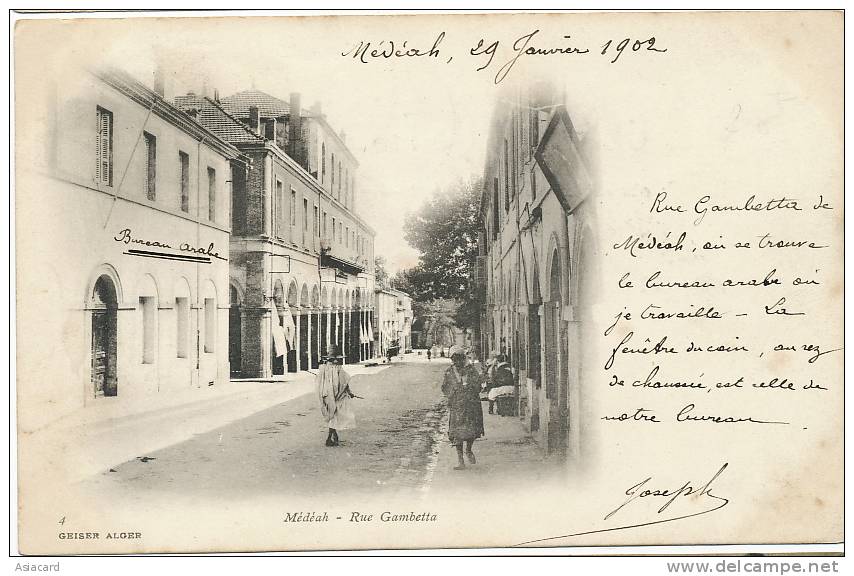 Médéah, 29 Janvier 1902
Bureau arabe
Rue Gambetta de
Médéah, où se trouve
le bureau arabe où
je travaille - La
fenêtre du coin, au rez
de chaussée, est celle de
notre bureau.
Joseph
4
Médéah - Rue Gambetta
GEISER ALGER
Asiacard
www.delcampe.net